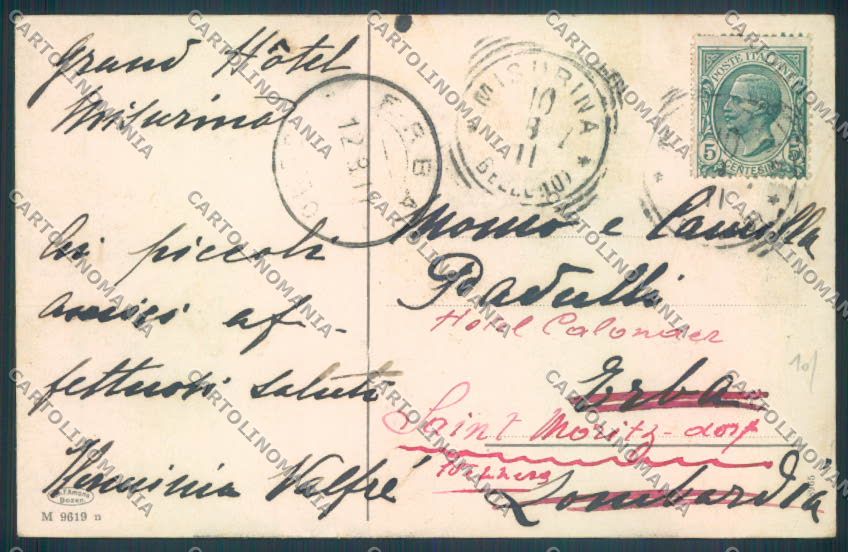 Grand Hôtel
Misurina
Ai piccoli
amici af-
fettuosi saluti
Erminia Valfré
F. Amonn
Bozen.
M 9619 n
ERBA
12.9.11
MISURINA
10
11
(BELLUNO)
POSTE ITALIANE
5 CENTESIMI 5
Momo e Camilla
Padulli
Hotel Calonder
Erba
Saint Moritz-dorf
Lombardia
10/
CARTOLINOMANIA